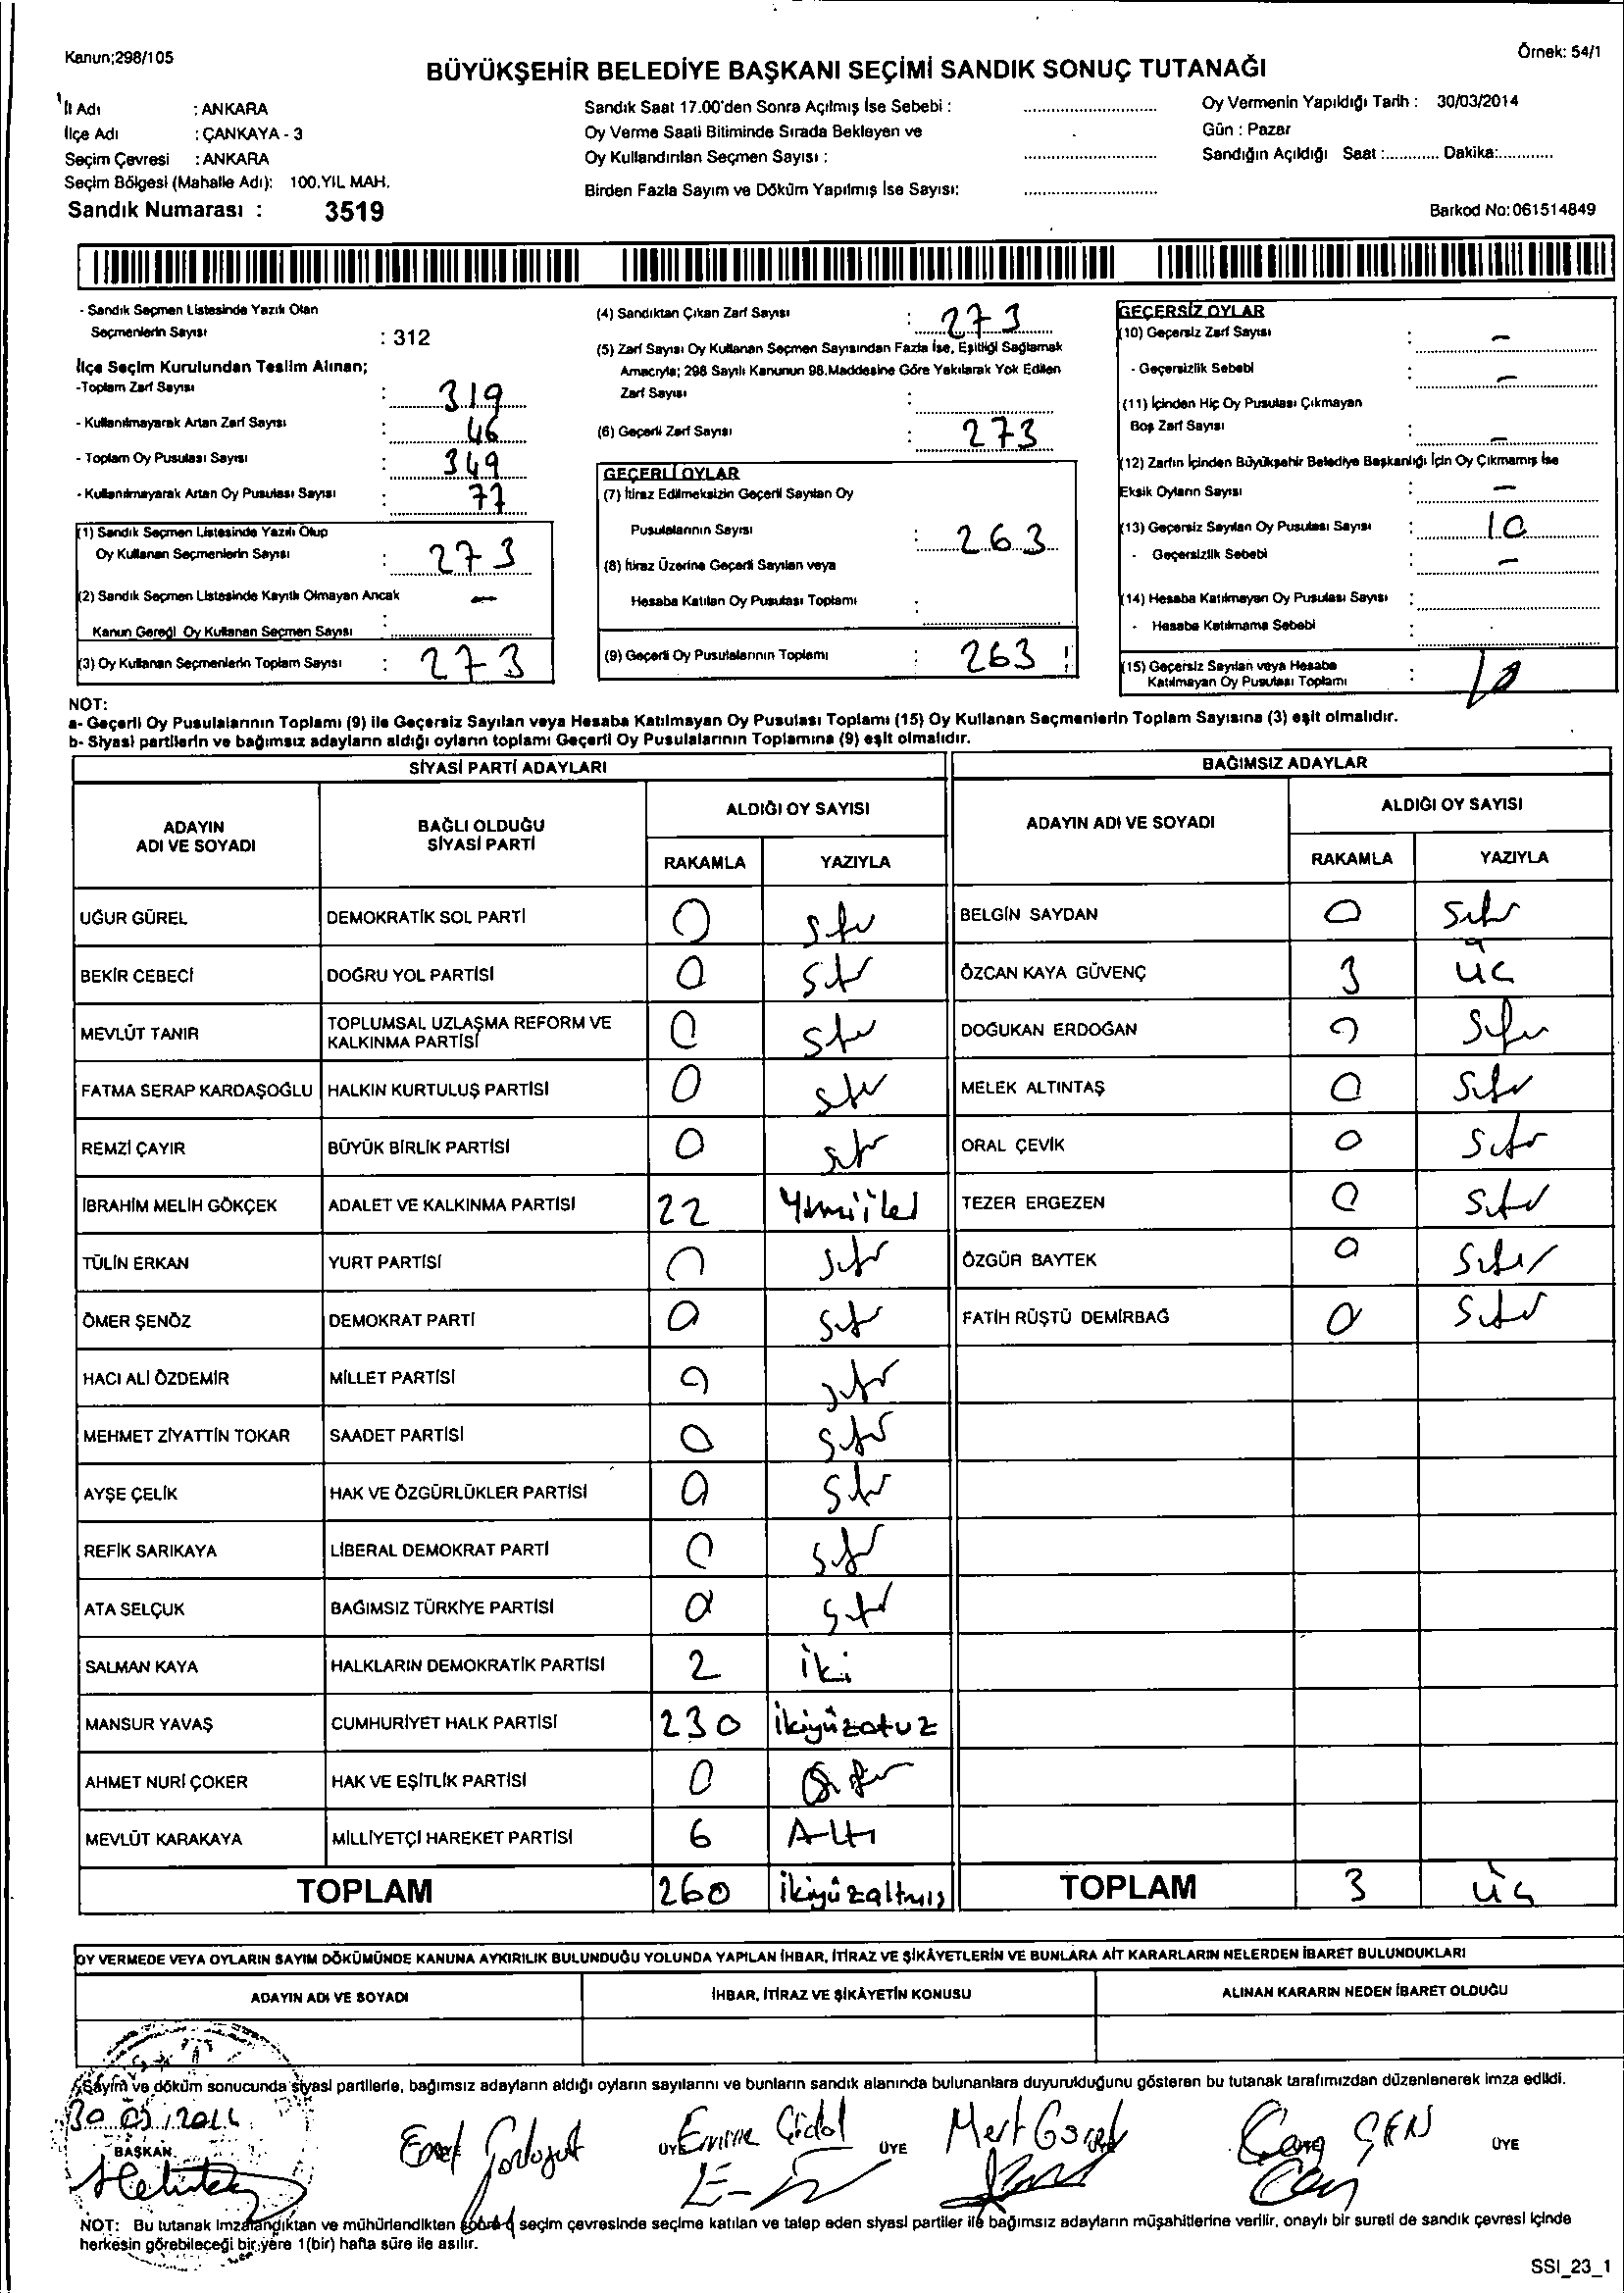 Kanun;298/105
Örnek: 54/1
BÜYÜKŞEHİR BELEDİYE BAŞKANI SEÇİMİ SANDIK SONUÇ TUTANAĞI
İl Adı : ANKARA
İlçe Adı : ÇANKAYA - 3
Seçim Çevresi : ANKARA
Seçim Bölgesi (Mahalle Adı): 100.YIL MAH.
Sandık Numarası : 3519
Sandık Saat 17.00'den Sonra Açılmış İse Sebebi :
Oy Verme Saati Bitiminde Sırada Bekleyen ve
Oy Kullandırılan Seçmen Sayısı :
Birden Fazla Sayım ve Döküm Yapılmış İse Sayısı:
Oy Vermenin Yapıldığı Tarih : 30/03/2014
Gün : Pazar
Sandığın Açıldığı Saat :............ Dakika:............
Barkod No:061514849
- Sandık Seçmen Listesinde Yazılı Olan
Seçmenlerin Sayısı : 312
İlçe Seçim Kurulundan Teslim Alınan;
-Toplam Zarf Sayısı : 319
- Kullanılmayarak Artan Zarf Sayısı : 46
- Toplam Oy Pusulası Sayısı : 349
- Kullanılmayarak Artan Oy Pusulası Sayısı : 77
(1) Sandık Seçmen Listesinde Yazılı Olup
Oy Kullanan Seçmenlerin Sayısı : 273
(2) Sandık Seçmen Listesinde Kayıtlı Olmayan Ancak
Kanun Gereği Oy Kullanan Seçmen Sayısı : -
(3) Oy Kullanan Seçmenlerin Toplam Sayısı : 273
(4) Sandıktan Çıkan Zarf Sayısı : 273
(5) Zarf Sayısı Oy Kullanan Seçmen Sayısından Fazla İse, Eşitliği Sağlamak
Amacıyla; 298 Sayılı Kanunun 98.Maddesine Göre Yakılarak Yok Edilen
Zarf Sayısı :
(6) Geçerli Zarf Sayısı : 273
GEÇERLİ OYLAR
(7) İtiraz Edilmeksizin Geçerli Sayılan Oy
Pusulalarının Sayısı : 263
(8) İtiraz Üzerine Geçerli Sayılan veya
Hesaba Katılan Oy Pusulası Toplamı :
(9) Geçerli Oy Pusulalarının Toplamı : 263
GEÇERSİZ OYLAR
(10) Geçersiz Zarf Sayısı : -
- Geçersizlik Sebebi : -
(11) İçinden Hiç Oy Pusulası Çıkmayan
Boş Zarf Sayısı : -
(12) Zarfın İçinden Büyükşehir Belediye Başkanlığı İçin Oy Çıkmamış İse
Eksik Oyların Sayısı : -
(13) Geçersiz Sayılan Oy Pusulası Sayısı : 10
- Geçersizlik Sebebi : -
(14) Hesaba Katılmayan Oy Pusulası Sayısı :
- Hesaba Katılmama Sebebi :
(15) Geçersiz Sayılan veya Hesaba
Katılmayan Oy Pusulası Toplamı : 10
NOT:
a- Geçerli Oy Pusulalarının Toplamı (9) ile Geçersiz Sayılan veya Hesaba Katılmayan Oy Pusulası Toplamı (15) Oy Kullanan Seçmenlerin Toplam Sayısına (3) eşit olmalıdır.
b- Siyasi partilerin ve bağımsız adayların aldığı oyların toplamı Geçerli Oy Pusulalarının Toplamına (9) eşit olmalıdır.
SİYASİ PARTİ ADAYLARI
ADAYIN ADI VE SOYADI
BAĞLI OLDUĞU SİYASİ PARTİ
ALDIĞI OY SAYISI
RAKAMLA YAZIYLA
UĞUR GÜREL DEMOKRATİK SOL PARTİ 0 Sıfır
BEKİR CEBECİ DOĞRU YOL PARTİSİ 0 Sıfır
MEVLÜT TANIR TOPLUMSAL UZLAŞMA REFORM VE KALKINMA PARTİSİ 0 Sıfır
FATMA SERAP KARDAŞOĞLU HALKIN KURTULUŞ PARTİSİ 0 Sıfır
REMZİ ÇAYIR BÜYÜK BİRLİK PARTİSİ 0 Sıfır
İBRAHİM MELİH GÖKÇEK ADALET VE KALKINMA PARTİSİ 22 Yirmiiki
TÜLİN ERKAN YURT PARTİSİ 0 Sıfır
ÖMER ŞENÖZ DEMOKRAT PARTİ 0 Sıfır
HACI ALİ ÖZDEMİR MİLLET PARTİSİ 0 Sıfır
MEHMET ZİYATTİN TOKAR SAADET PARTİSİ 0 Sıfır
AYŞE ÇELİK HAK VE ÖZGÜRLÜKLER PARTİSİ 0 Sıfır
REFİK SARIKAYA LİBERAL DEMOKRAT PARTİ 0 Sıfır
ATA SELÇUK BAĞIMSIZ TÜRKİYE PARTİSİ 0 Sıfır
SALMAN KAYA HALKLARIN DEMOKRATİK PARTİSİ 2 iki
MANSUR YAVAŞ CUMHURİYET HALK PARTİSİ 230 ikiyüzotuz
AHMET NURİ ÇOKER HAK VE EŞİTLİK PARTİSİ 0 Sıfır
MEVLÜT KARAKAYA MİLLİYETÇİ HAREKET PARTİSİ 6 Altı
TOPLAM 260 ikiyüzaltmış
BAĞIMSIZ ADAYLAR
ADAYIN ADI VE SOYADI
ALDIĞI OY SAYISI
RAKAMLA YAZIYLA
BELGİN SAYDAN 0 Sıfır
ÖZCAN KAYA GÜVENÇ 3 üç
DOĞUKAN ERDOĞAN 0 Sıfır
MELEK ALTINTAŞ 0 Sıfır
ORAL ÇEVİK 0 Sıfır
TEZER ERGEZEN 0 Sıfır
ÖZGÜR BAYTEK 0 Sıfır
FATİH RÜŞTÜ DEMİRBAĞ 0 Sıfır
TOPLAM 3 üç
OY VERMEDE VEYA OYLARIN SAYIM DÖKÜMÜNDE KANUNA AYKIRILIK BULUNDUĞU YOLUNDA YAPILAN İHBAR, İTİRAZ VE ŞİKÂYETLERİN VE BUNLARA AİT KARARLARIN NELERDEN İBARET BULUNDUKLARI
ADAYIN ADI VE SOYADI
İHBAR, İTİRAZ VE ŞİKÂYETİN KONUSU
ALINAN KARARIN NEDEN İBARET OLDUĞU
Sayım ve döküm sonucunda siyasi partilerle, bağımsız adayların aldığı oyların sayılarını ve bunların sandık alanında bulunanlara duyurulduğunu gösteren bu tutanak tarafımızdan düzenlenerek imza edildi.
30 03 2014
BAŞKAN ÜYE Emine ÜYE Mert ÜYE ÜYE
NOT: Bu tutanak imzalandıktan ve mühürlendikten sonra o seçim çevresinde seçime katılan ve talep eden siyasi partiler ile bağımsız adayların müşahitlerine verilir, onaylı bir sureti de sandık çevresi içinde
herkesin görebileceği bir yere 1(bir) hafta süre ile asılır.
SSI_23_1